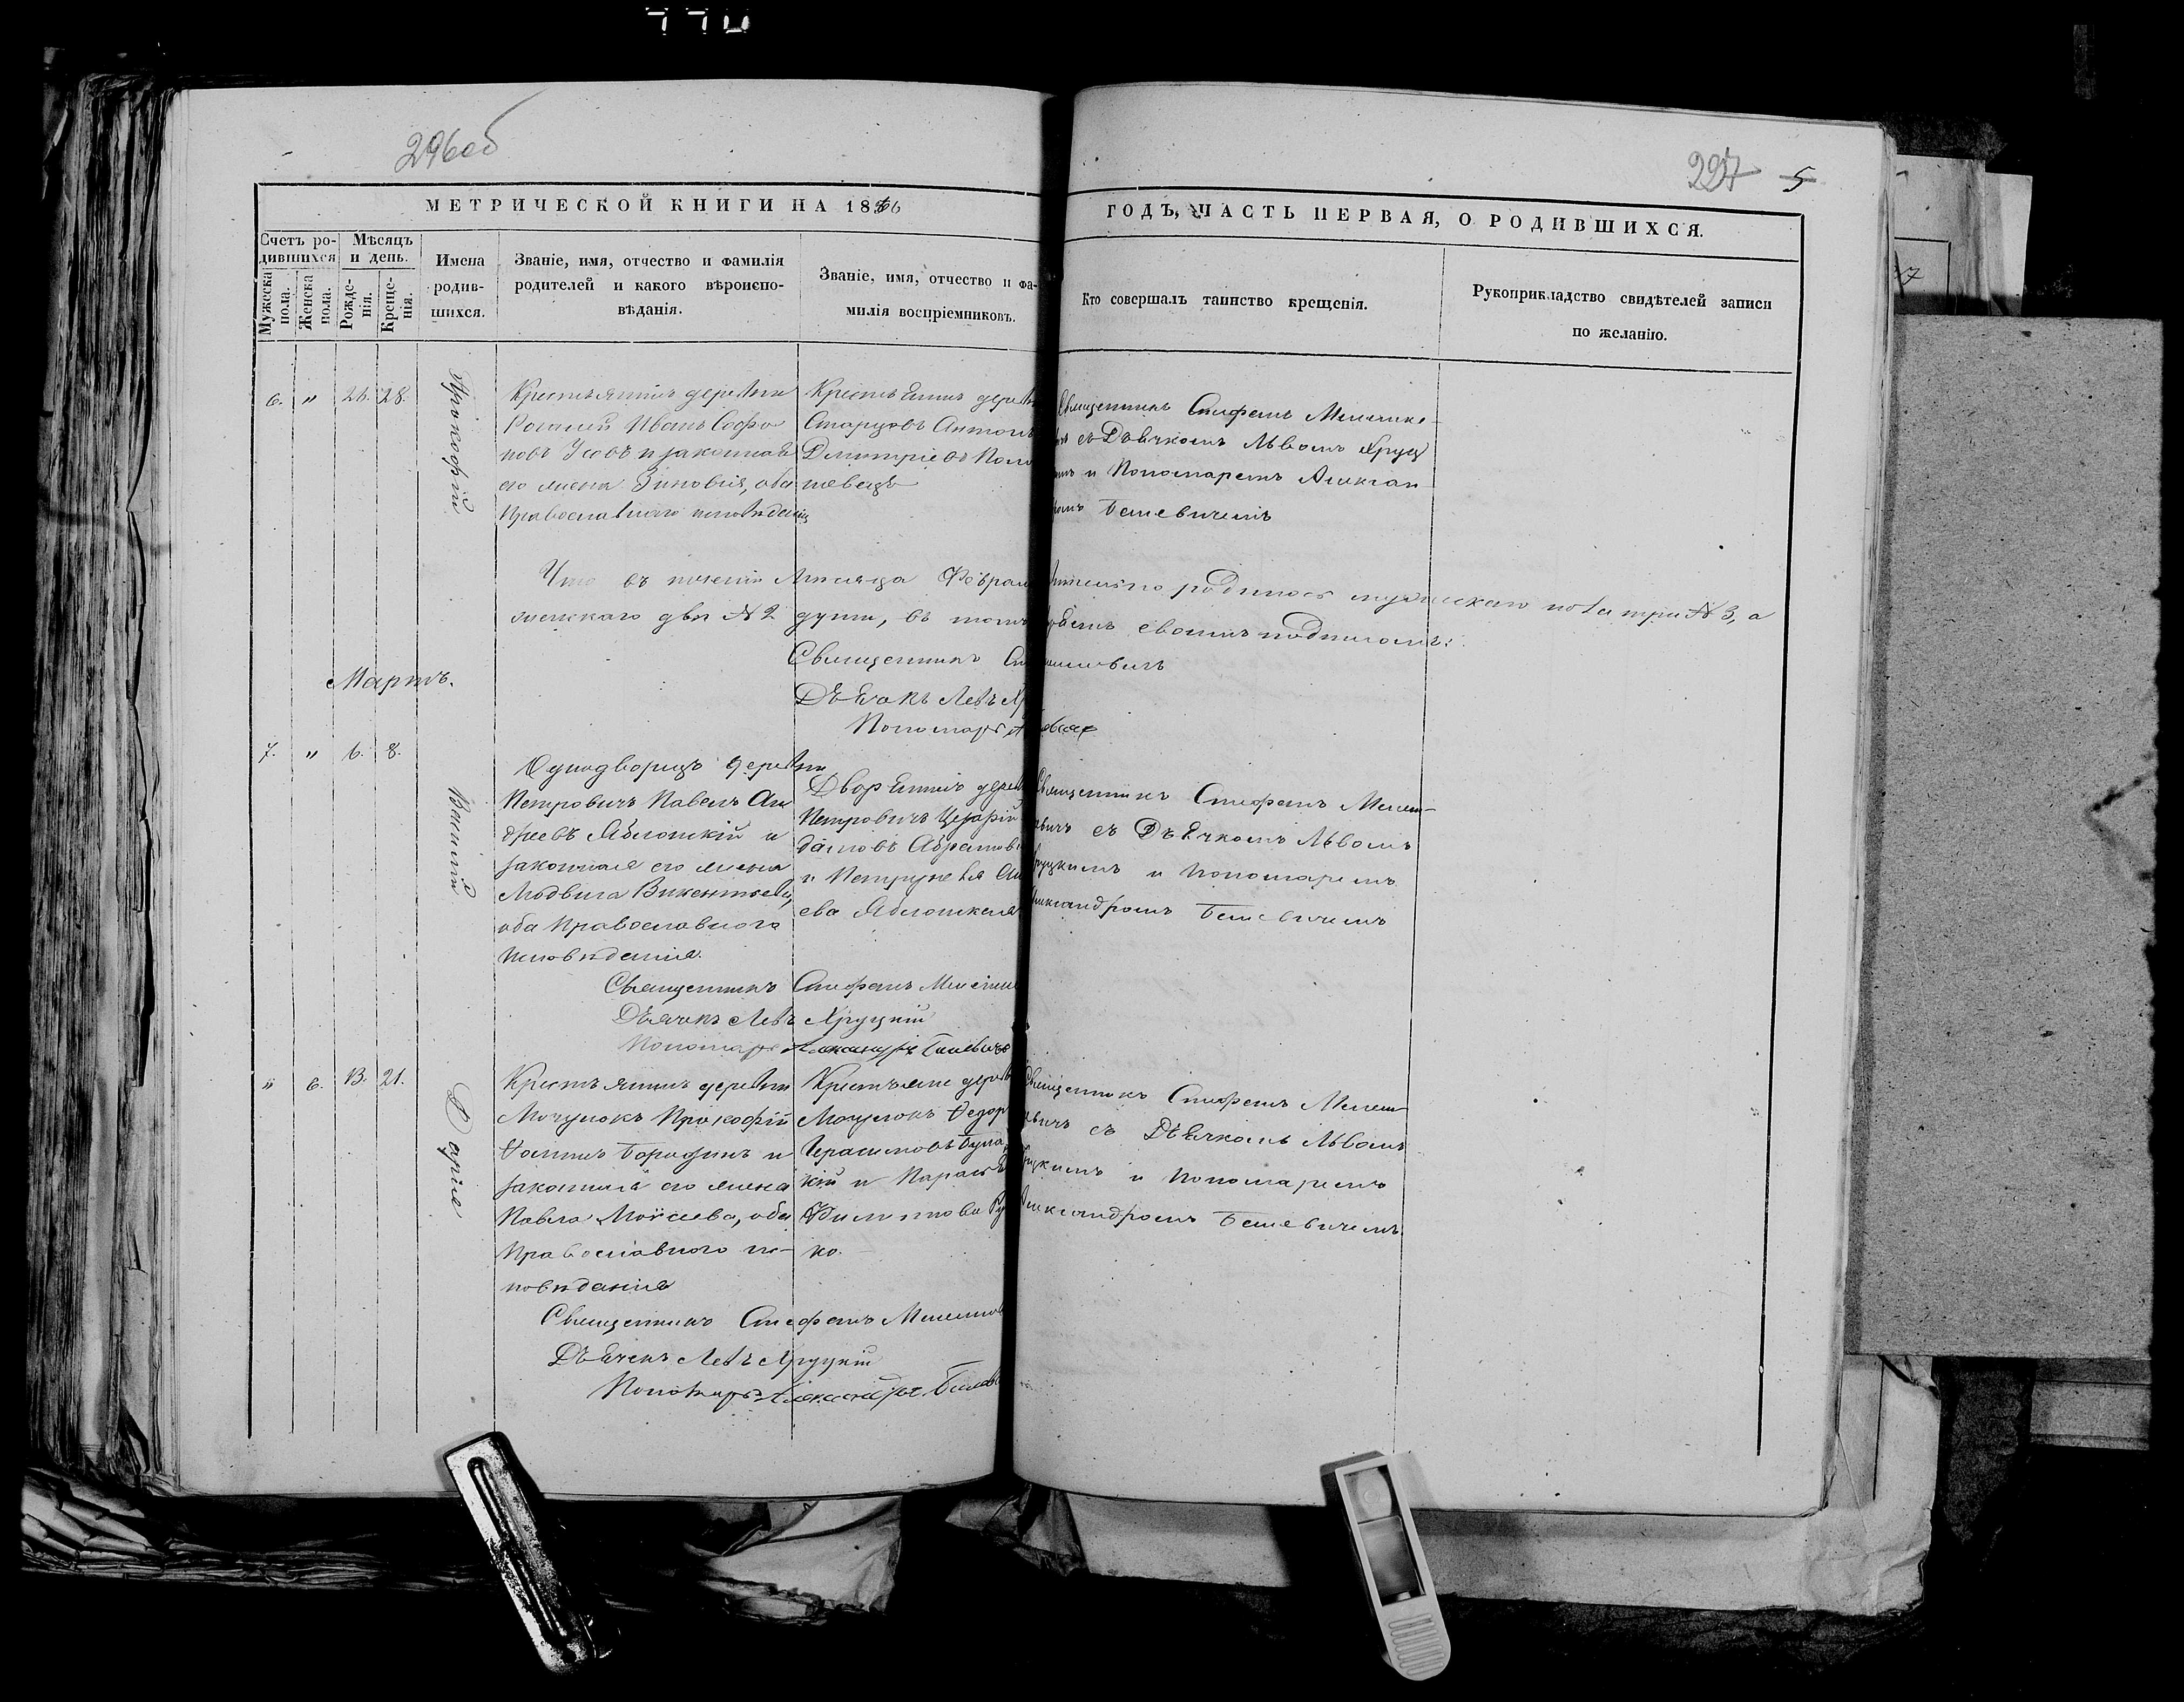 296об
297 5
МЕТРИЧЕСКОЙ КНИГИ НА 1866
ГОДЪ, ЧАСТЬ ПЕРВАЯ, О РОДИВШИХСЯ.
Счетъ ро-
дившихся
Мужеска
пола.
Женска
пола.
Мѣсяцъ
и день.
Рожде-
нія.
Креще-
нія.
Имена
родив-
шихся.
Званіе, имя, отчество и фамилія
родителей и какого вѣроиспо-
вѣданія.
Званіе, имя, отчество и фа-
милія воспріемниковъ.
Кто совершалъ таинство крещенія.
Рукоприкладство свидѣтелей записи
по желанію.
6. " 26. 28.
Прокофій
Крестьянинъ деревни
Иванъ Софро
новъ Усовъ и законная
его жена Зиновія, оба
Православнаго исповѣданія
Крестьянинъ дерев
Старцовъ Антонъ
Дмитріевъ
Священникъ Стефанъ
съ Дьячкомъ Львомъ Хруц
и Пономаремъ Алексан
Беневичемъ
Что въ теченіи Мѣсяца Феврал
родилось мужескаго пола три № 3, а
женскаго двѣ № 2 души, въ томъ
своимъ подписомъ:
Священникъ
Дьячокъ Левъ
Пономарь
Мартъ.
7. " 6. 8.
Василій
Однодворецъ деревни
Петровичъ Павелъ Ан
дреевъ Яблонскій и
законная его жена
Людвига Викентьева,
оба Православнаго
исповѣданія.
Дворянинъ дерев
Петровичъ Цезарій
и Петрунеля Ан
ева Яблонская
Священникъ Стефанъ
съ Дьячкомъ Львомъ
и Пономаремъ
Александромъ Беневичемъ
Священникъ Стефанъ
Дьячекъ Левъ Хруцкій
Пономарь Александръ Беневичъ
" 6. 13. 21.
Дарія
Крестьянинъ деревни
Мочулокъ Прокофій
Фоминъ и
законная его жена
Павла Моисеева, оба
Православнаго ис-
повѣданія
Крестьяне дерев
Мочулокъ Федоръ
Герасимовъ
кій и Параск
Филипова
ко.
Священникъ Стефанъ
съ Дьячкомъ Львомъ
и Пономаремъ
Александромъ Беневичемъ
Священникъ Стефанъ
Дьячекъ Левъ Хруцкій
Пономарь Александръ